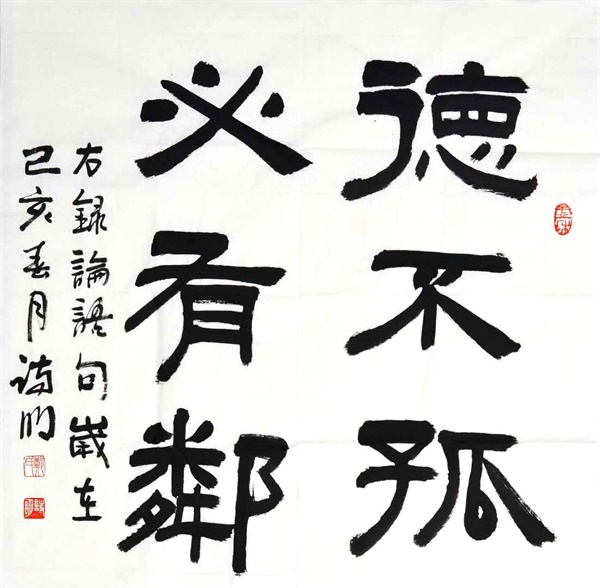 德不孤
必有鄰
右録論語句歲在
己亥春月詩明